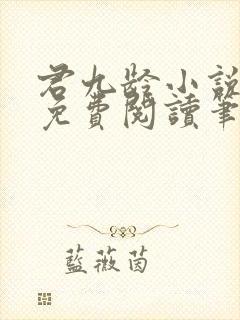 君九齡小說
免費閱讀筆
藍薇茵